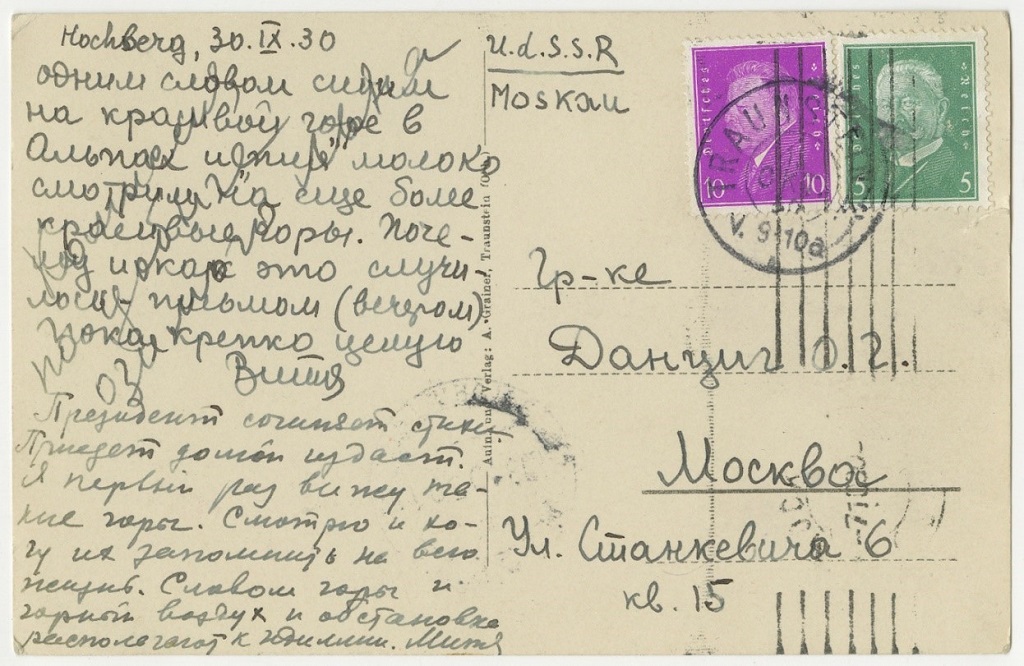 Hochberg, 30.IX.30
одним словом сидим
на красивой горе в
Альпах и пия молоко
смотрим на еще более
красивые горы. Поче-
му и как это случи-
лось - письмом (вечером)
Пока крепко целую
Витя
Президент сочиняет стихи
Приедет домой издаст.
Я первый раз вижу та-
кие горы. Смотрю и хо-
чу их запомнить на всю
жизнь. Словом горы и
горный воздух и обстановка
располагают к идиллии. Митя
U.d.S.S.R
Moskau
Гр-ке
Данциг О.Г.
Москва
Ул. Станкевича 6
кв. 15
Verlag: A. Grainer, Traunstein
Deutsches Reich
10 10
Deutsches Reich
5 5
TRAUNSTEIN
V. 9-10a